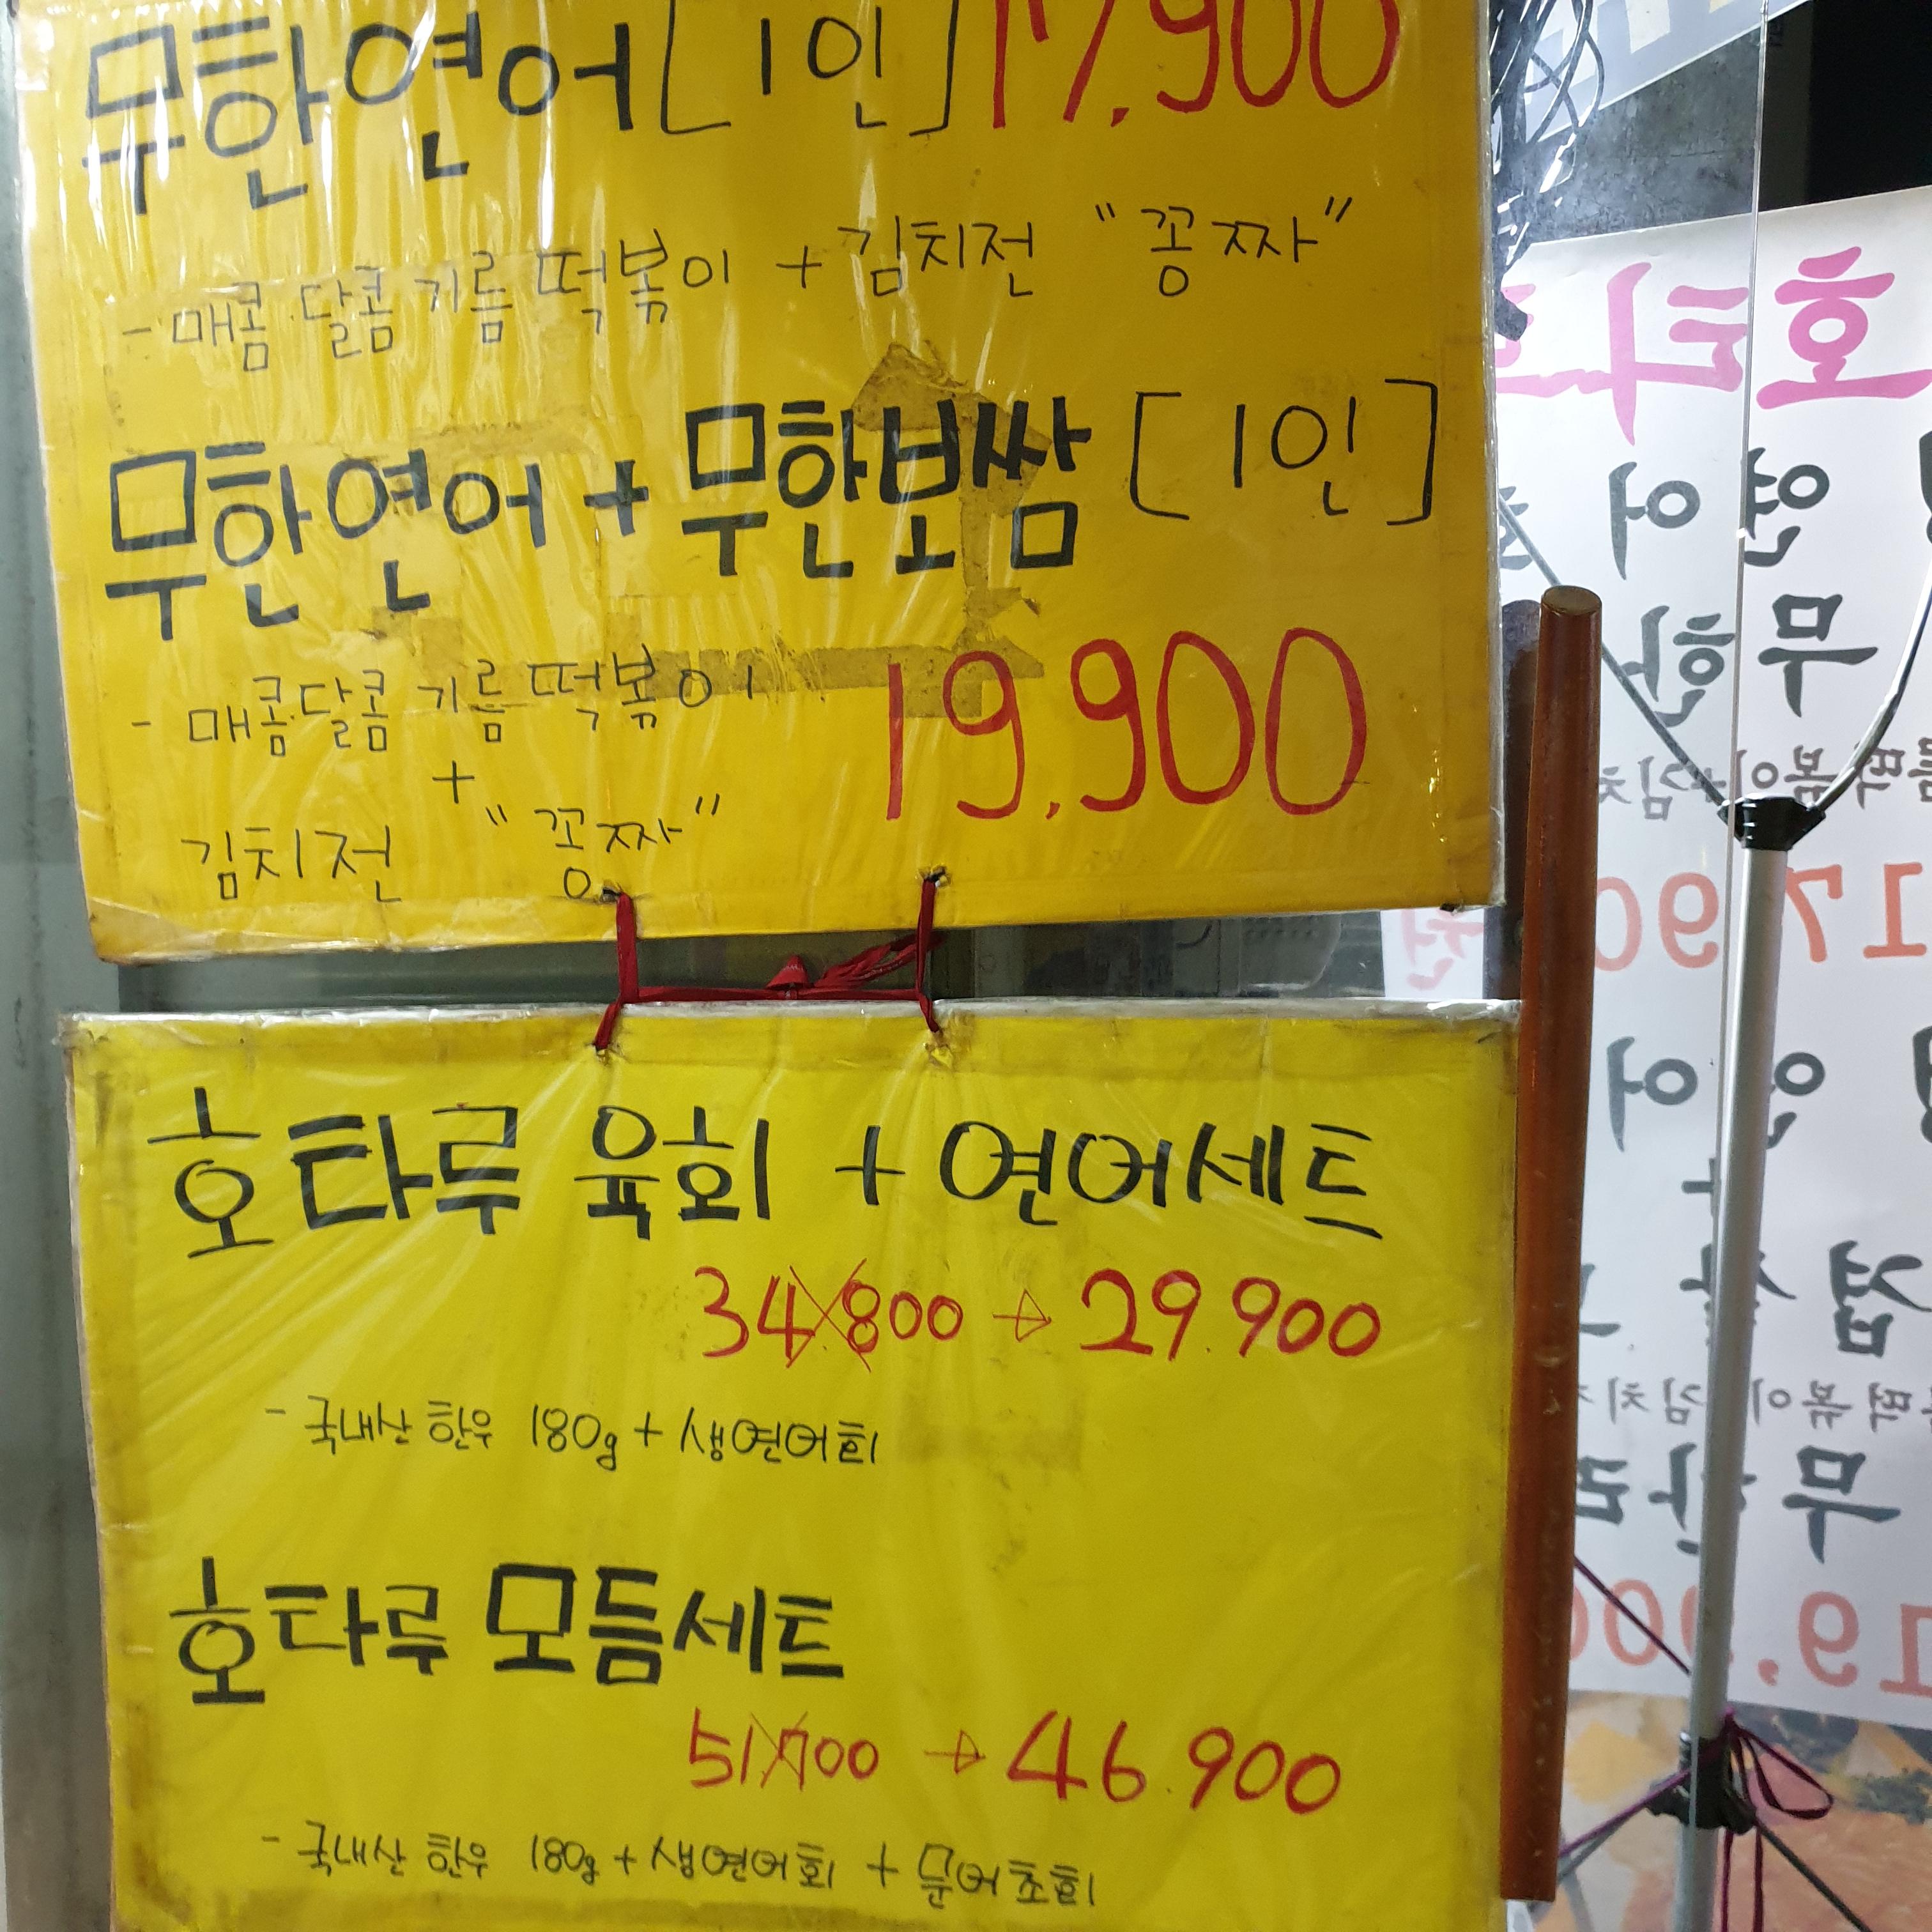 무한연어 [1인] 17,900
- 매콤.달콤 기름 떡볶이 + 김치전 "꽁짜"
무한연어 + 무한보쌈 [1인]
19,900
- 매콤.달콤 기름 떡볶이
+
김치전 "꽁짜"
호타루 육회 + 연어세트
34.800 → 29.900
- 국내산 한우 180g + 생연어회
호타루 모듬세트
51.700 → 46.900
- 국내산 한우 180g + 생연어회 + 문어초회
호타
연어
무한
17,90
연어
무한
19,90